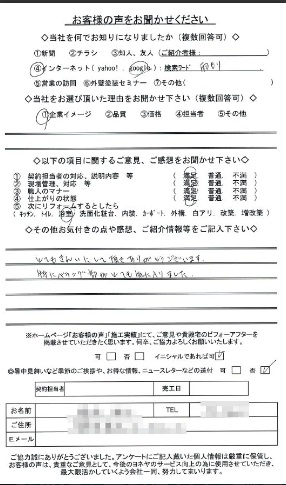 お客様の声をお聞かせください
◇当社を何でお知りになりましたか（複数回答可）
①新聞 ②チラシ ③知人、友人（ご紹介者様： ）
④インターネット（yahoo！. google）：検索ワード
⑤営業の訪問 ⑥外壁塗装セミナー ⑦その他（ ）
◇当社をお選び頂いた理由をお聞かせ下さい（複数回答可）
①企業イメージ ②品質 ③価格 ④担当者 ⑤その他
◇以下の項目に関するご意見、ご感想をお聞かせ下さい◇
① 契約担当者の対応、説明内容 等 （ 満足 普通. 不満 ）
② 現場管理、対応 等 （ 満足 普通. 不満 ）
③ 職人のマナー （ 満足 普通. 不満 ）
④ 仕上がりの状態 （ 満足 普通. 不満 ）
⑤ 次にリフォームするとしたら
（キッチン、トイレ、浴室、洗面化粧台、内装、カーポート、外構、白アリ、改築、増改築）
◇その他お気付きの点や感想、ご紹介情報等をご記入下さい◇
とてもきれいにして頂きありがとうございます。
※ホームページ「お客様の声」「施工実績」にて、ご意見や貴殿宅のビフォーアフターを
掲載させていただきたく思います。何卒、ご協力よろしくお願いいたします。
可 □ 否 □ イニシャルであれば可 ☑
◎暑中見舞いなど季節のご挨拶や、お得な情報、ニュースレターなどの送付 可 □ 否 ☑
契約担当者 完工日
お名前 TEL
ご住所
Eメール
ご協力誠にありがとうございました。アンケートにご記入戴いた個人情報は厳重に保管し、
お客様の声は、貴重なご意見として、今後のヨネヤのサービス向上の為に使用させていただき、
最大限活かしていくよう会社一同、努力してまいります。